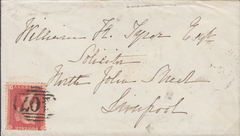 William H. Tyrer Esqr
Solicitor
North John Street
Liverpool
107